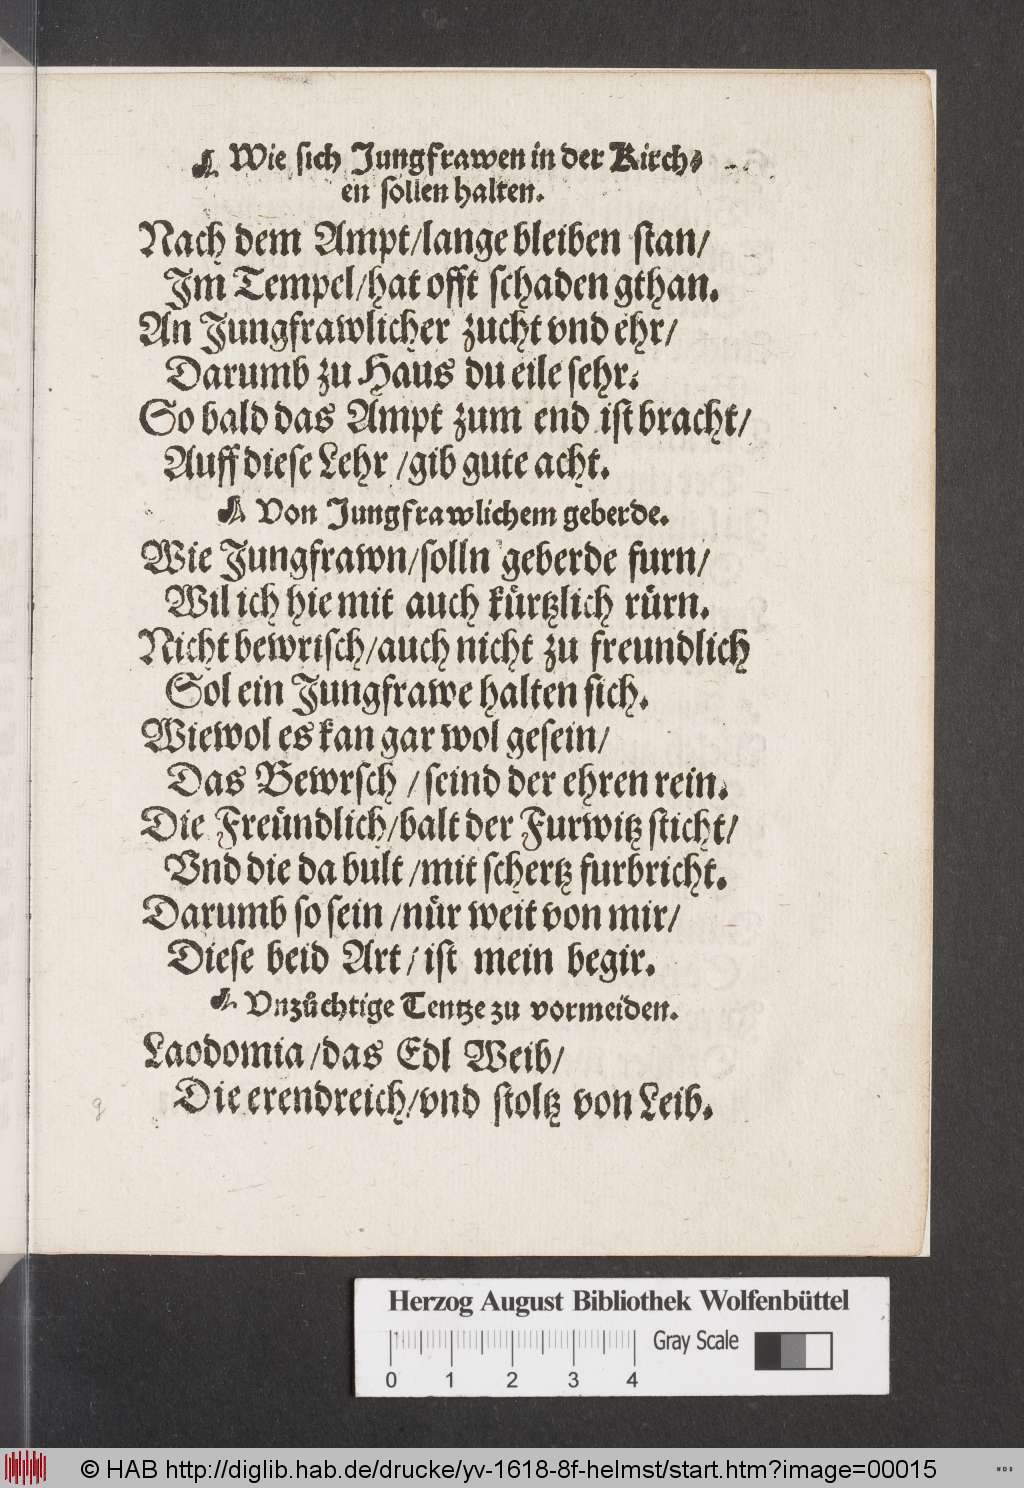 ☙ Wie sich Jungfrawen in der Kirch⸗
en sollen halten.
Nach dem Ampt/lange bleiben stan/
Im Tempel/hat offt schaden gthan.
An Jungfrawlicher zucht vnd ehr/
Darumb zu Haus du eile sehr.
So bald das Ampt zum end ist bracht/
Auff diese Lehr /gib gute acht.
☙ Von Jungfrawlichem geberde.
Wie Jungfrawn/solln geberde furn/
Wil ich hie mit auch kürtzlich rürn.
Nicht bewrisch/auch nicht zu freundlich
Sol ein Jungfrawe halten sich.
Wiewol es kan gar wol gesein/
Das Bewrsch / seind der ehren rein.
Die Freündlich/balt der Furwitz sticht/
Vnd die da bult /mit schertz furbricht.
Darumb so sein /nür weit von mir/
Diese beid Art/ ist mein begir.
☙ Vnzůchtige Tentze zu vormeiden.
Laodomia /das Edl Weib/
Die erendreich/vnd stoltz von Leib.
g
Herzog August Bibliothek Wolfenbüttel
Gray Scale
0 1 2 3 4
© HAB http://diglib.hab.de/drucke/yv-1618-8f-helmst/start.htm?image=00015